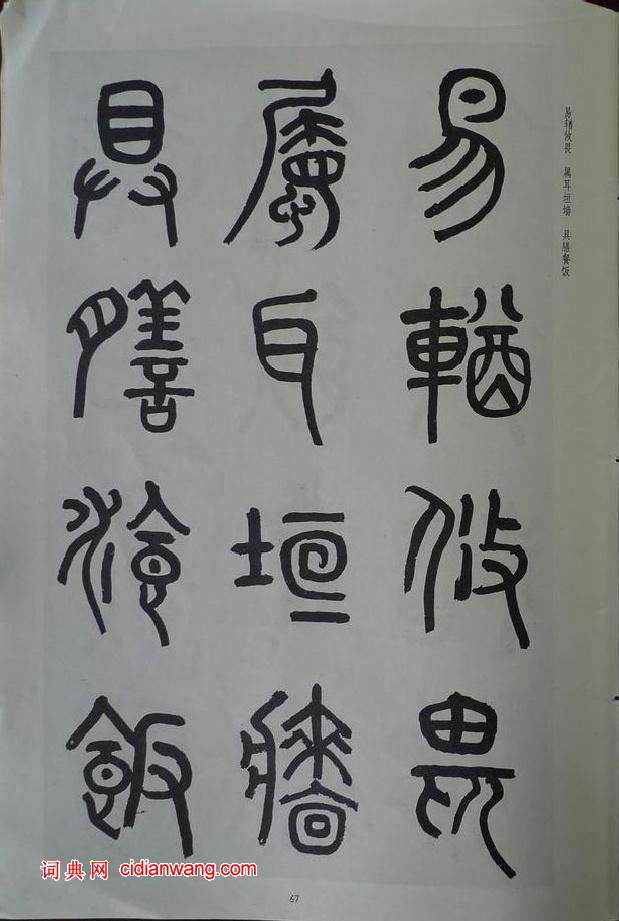 易𬨎攸畏 属耳垣墙 具膳餐饭
易輶攸畏
屬耳垣牆
具膳湌飯
词典网 cidianwang.com
67